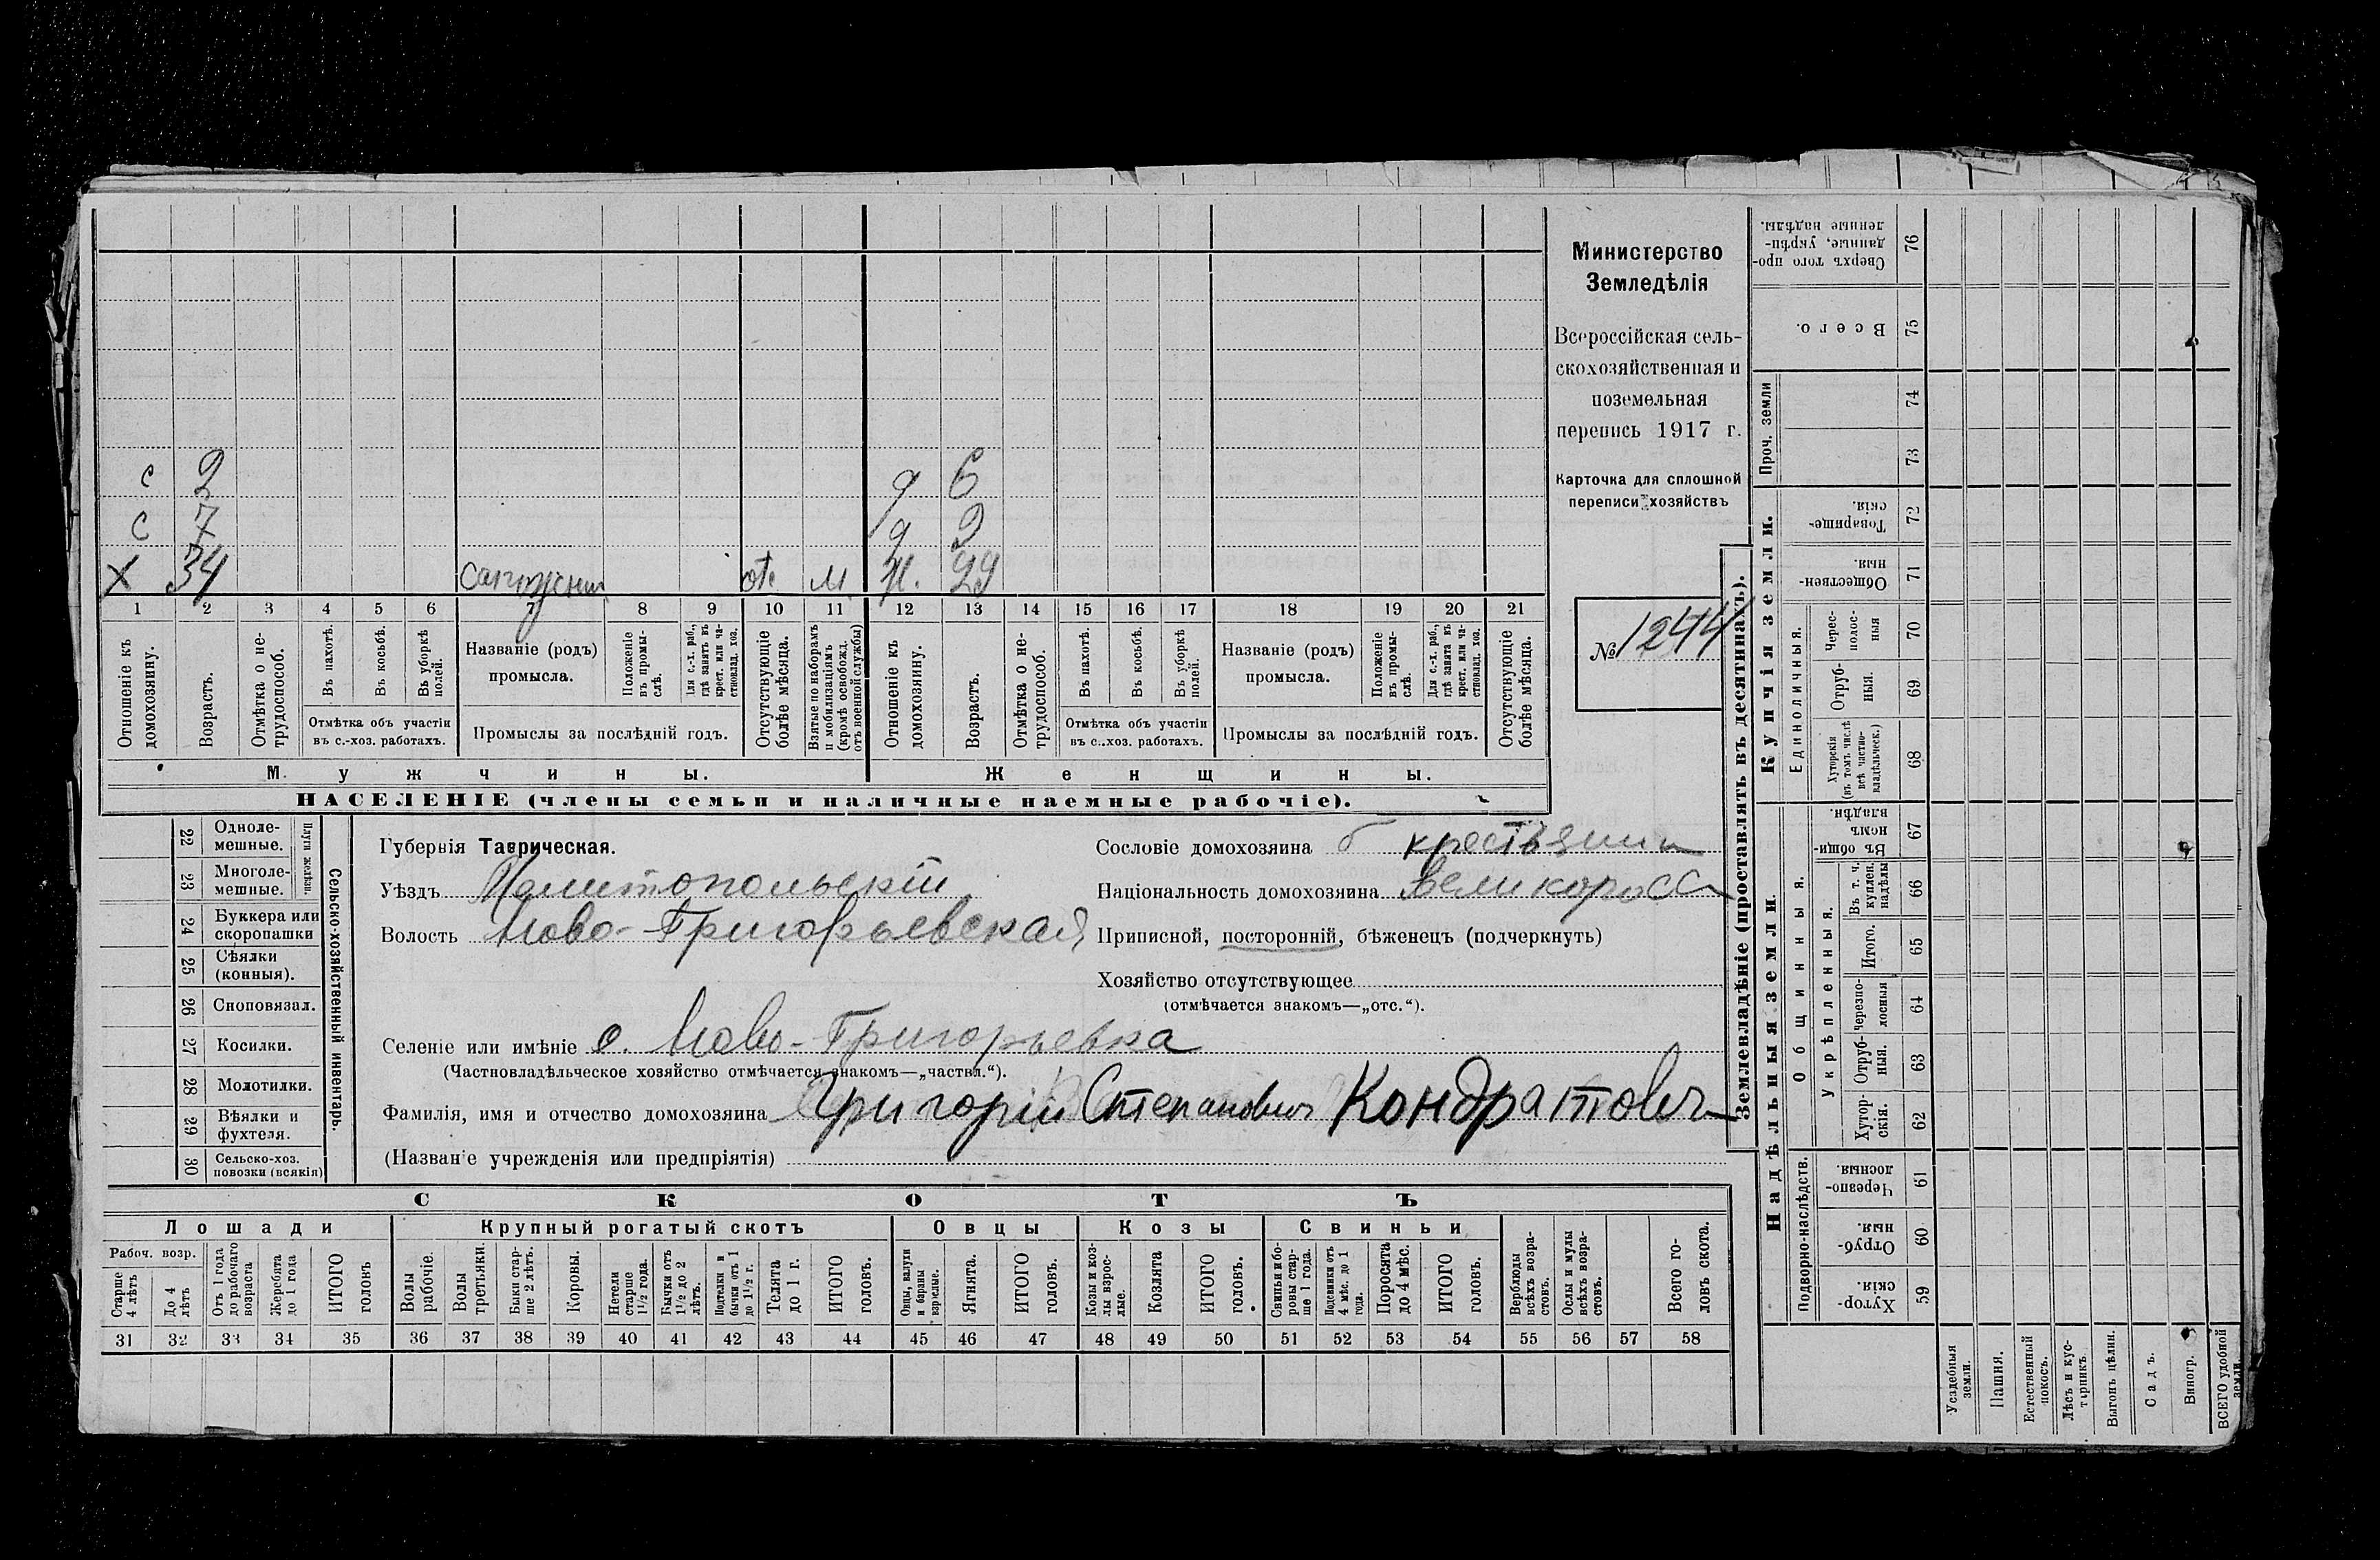 Министерство
Земледѣлія
Всероссійская сель-
скохозяйственная и
поземельная
перепись 1917 г.
Карточка для сплошной
переписи хозяйствъ
№ 1244
с 2 д 6
с 7 д 9
х 34 отс м. ж. 29
1 2 3 4 5 6 7 8 9 10 11 12 13 14 15 16 17 18 19 20 21
Отношеніе къ домохозяину.
Возрастъ.
Отмѣтка о не-трудоспособ.
Въ пахотѣ.
Въ косьбѣ.
Въ уборкѣ полей.
Отмѣтка объ участіи
въ с.-хоз. работахъ.
Названіе (родъ)
промысла.
Положеніе въ промы-слѣ.
Для с.-х. раб., гдѣ занятъ въ крест. или ча-стновлад. хоз.
Промыслы за послѣдній годъ.
Отсутствующіе болѣе мѣсяца.
Взятые по наборамъ и мобилизаціямъ (кромѣ освобожд. отъ военной службы)
Отношеніе къ домохозяину.
Возрастъ.
Отмѣтка о не-трудоспособ.
Въ пахотѣ.
Въ косьбѣ.
Въ уборкѣ полей.
Отмѣтка объ участіи
въ с.-хоз. работахъ.
Названіе (родъ)
промысла.
Положеніе въ промы-слѣ.
Для с.-х. раб., гдѣ занята въ крест. или ча-стновлад. хоз.
Промыслы за послѣдній годъ.
Отсутствующіе болѣе мѣсяца.
Мужчины. Женщины.
НАСЕЛЕНІЕ (члены семьи и наличные наемные рабочіе).
Сельско-хозяйственный инвентарь.
Плуги желѣзн.
22 Одноле-мешные.
23 Многоле-мешные.
24 Буккера или скоропашки
25 Сѣялки (конныя).
26 Сноповязал.
27 Косилки.
28 Молотилки.
29 Вѣялки и фухтеля.
30 Сельско-хоз. повозки (всякія)
Губернія Таврическая.
Уѣздъ Мелитопольскій
Волость Ново-Григорьевская
Сословіе домохозяина крестьянин
Національность домохозяина великоросс
Приписной, посторонній, бѣженецъ (подчеркнуть)
Хозяйство отсутствующее
(отмѣчается знакомъ—„отс.“).
Селеніе или имѣніе с. Ново-Григорьевка
(Частновладѣльческое хозяйство отмѣчается знакомъ—„частвл.“).
Фамилія, имя и отчество домохозяина Григорій Степанович Кондратович
(Названіе учрежденія или предпріятія)
СКОТЪ
Лошади Крупный рогатый скотъ Овцы Козы Свиньи
Рабоч. возр.
Старше 4 лѣтъ
До 4 лѣтъ
Отъ 1 года до рабочаго возраста
Жеребята до 1 года
ИТОГО головъ
Волы рабочіе.
Волы третьяки.
Быки стар-ше 2 лѣтъ.
Коровы.
Нетели старше 1½ года.
Бычки отъ 1½ до 2 лѣтъ.
Подтелки и бычки отъ 1 до 1½ г.
Телята до 1 г.
ИТОГО головъ.
Овцы, валухи и бараны взрослые.
Ягнята.
ИТОГО головъ.
Козы и коз-лы взрос-лые.
Козлята
ИТОГО головъ.
Свиньи и бо-ровы стар-ше 1 года.
Подсвинки отъ 4 мѣс. до 1 года.
Поросята до 4 мѣс.
ИТОГО головъ.
Верблюды всѣхъ возра-стовъ.
Ослы и мулы всѣхъ возра-стовъ.
Всего го-ловъ скота.
31 32 33 34 35 36 37 38 39 40 41 42 43 44 45 46 47 48 49 50 51 52 53 54 55 56 57 58
Землевладѣніе (проставлять въ десятинахъ).
Купчія земли.
Надѣльныя земли.
Проч. земли
76 Сверхъ того про-данные, укрѣп-ленные надѣлы.
75 Всего.
74
73
72 Товарище-скія.
71 Обществен-ныя.
Единоличныя.
70 Черес-полос-ныя
69 Отруб-ныя.
68 Хуторскія (въ томъ числѣ всѣ частно-владѣльческ.)
Общинныя.
67 Въ общи-номъ владѣн.
Укрѣпленныя.
66 Въ т. ч. куплен. надѣлы
65 Итого.
64 Черезпо-лосныя
63 Отруб-ныя.
62 Хутор-скія.
Подворно-наслѣдств.
61 Черезпо-лосныя.
60 Отруб-ныя.
59 Хутор-скія.
Усадебныя земли.
Пашня.
Естественный покосъ.
Лѣсъ и кус-тарникъ.
Выгонъ цѣлин.
Садъ.
Виногр.
ВСЕГО удобной земли.